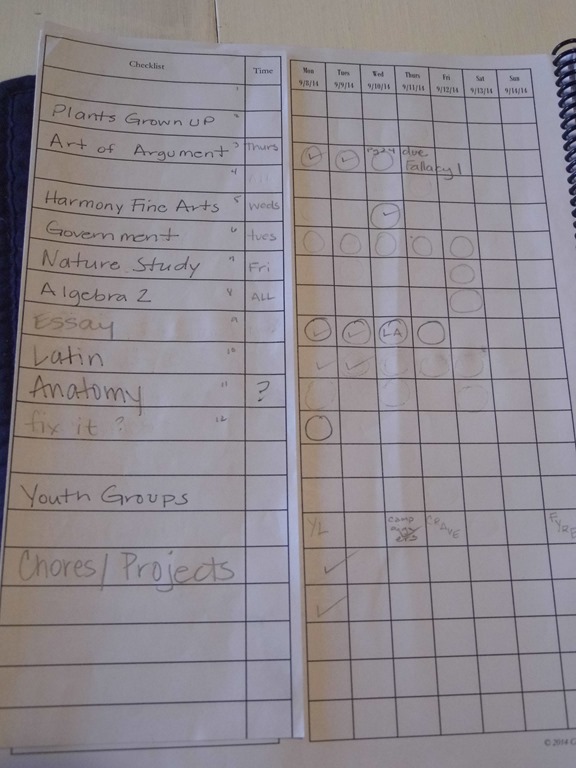 Checklist Time Mon Tues Wed Thurs Fri Sat Sun
9/8/14 9/9/14 9/10/14 9/11/14 9/12/14 9/13/14 9/14/14
Plants Grown UP
Art of Argument 3 Thurs due
Fallacy!
4
Harmony Fine Arts 5 Weds
Government 6 tues
Nature Study 7 Fri
Algebra 2 8 ALL
Essay 9 LA
Latin 10
Anatomy 11 ?
fix it? 12
Youth Groups
YL camp CRAVE FYRE
Chores/ Projects
© 2014 C